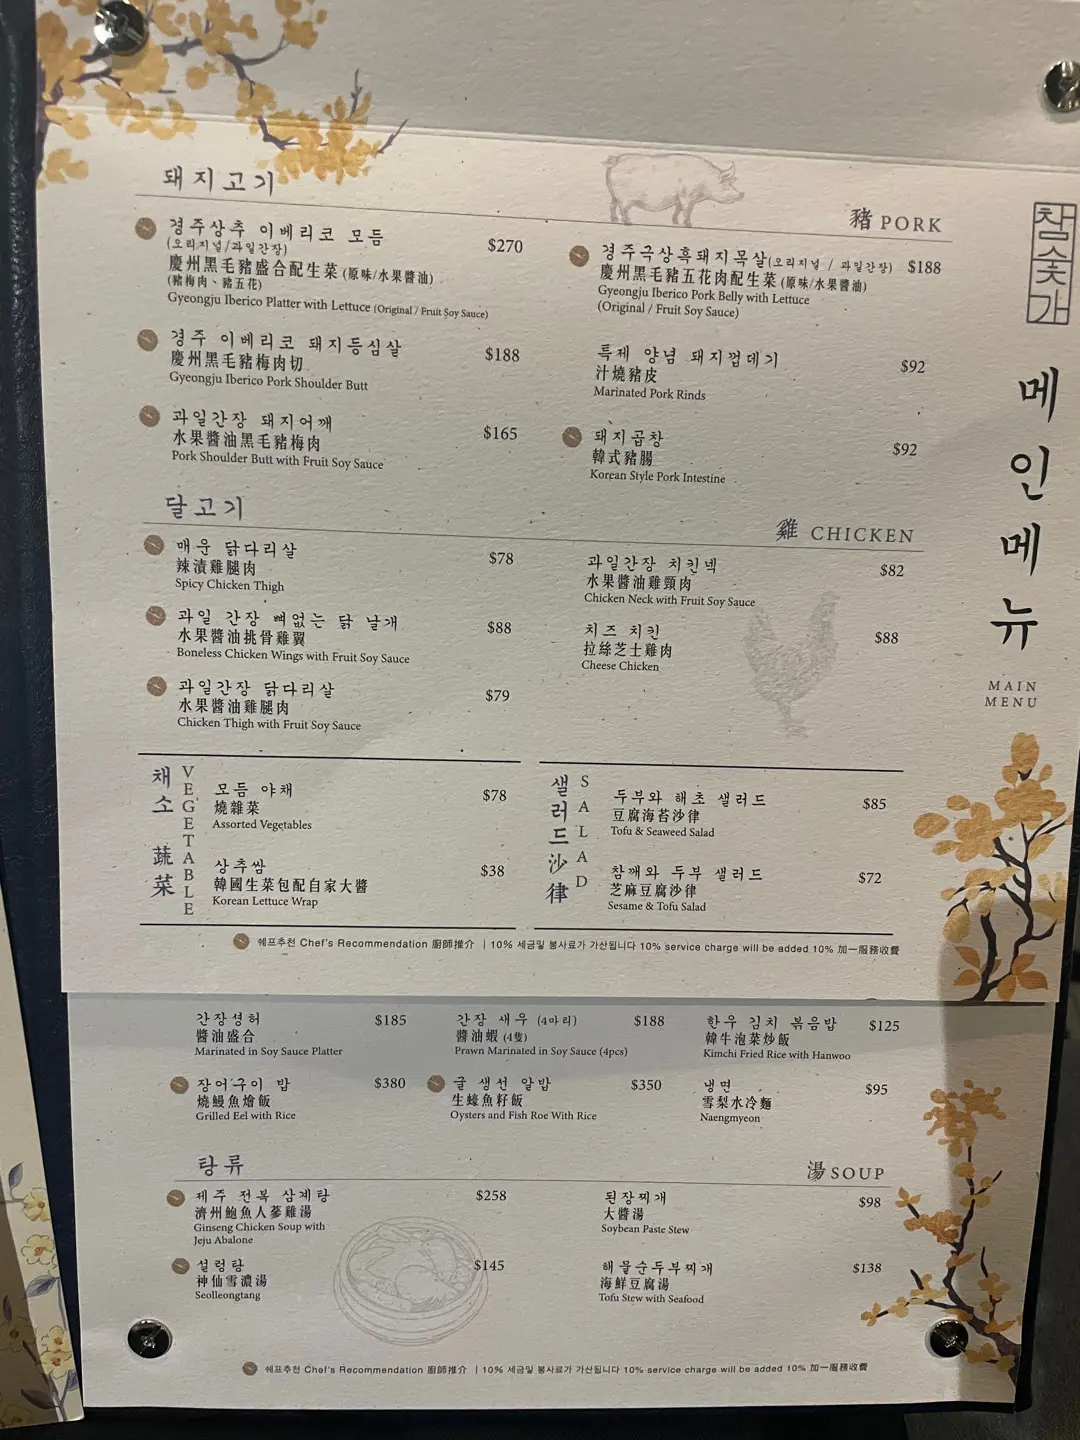 돼지고기
豬 PORK
경주상추 이베리코 모듬
(오리지널/과일간장)
慶州黑毛豬盛合配生菜 (原味/水果醬油)
(豬梅肉、豬五花)
Gyeongju Iberico Platter with Lettuce (Original / Fruit Soy Sauce)
$270
경주 이베리코 돼지등심살
慶州黑毛豬梅肉切
Gyeongju Iberico Pork Shoulder Butt
$188
과일간장 돼지어깨
水果醬油黑毛豬梅肉
Pork Shoulder Butt with Fruit Soy Sauce
$165
경주극상흑돼지목살(오리지널 / 과일간장)
慶州黑毛豬五花肉配生菜 (原味/水果醬油)
Gyeongju Iberico Pork Belly with Lettuce
(Original / Fruit Soy Sauce)
$188
특제 양념 돼지껍데기
汁燒豬皮
Marinated Pork Rinds
$92
돼지곱창
韓式豬腸
Korean Style Pork Intestine
$92
달고기
雞 CHICKEN
매운 닭다리살
辣漬雞腿肉
Spicy Chicken Thigh
$78
과일 간장 뼈없는 닭 날개
水果醬油挑骨雞翼
Boneless Chicken Wings with Fruit Soy Sauce
$88
과일간장 닭다리살
水果醬油雞腿肉
Chicken Thigh with Fruit Soy Sauce
$79
과일간장 치킨넥
水果醬油雞頸肉
Chicken Neck with Fruit Soy Sauce
$82
치즈 치킨
拉絲芝士雞肉
Cheese Chicken
$88
채소 蔬菜
VEGETABLE
모듬 야채
燒雜菜
Assorted Vegetables
$78
상추쌈
韓國生菜包配自家大醬
Korean Lettuce Wrap
$38
샐러드 沙律
SALAD
두부와 해초 샐러드
豆腐海苔沙律
Tofu & Seaweed Salad
$85
참깨와 두부 샐러드
芝麻豆腐沙律
Sesame & Tofu Salad
$72
쉐프추천 Chef's Recommendation 廚師推介 | 10% 세금및 봉사료가 가산됩니다 10% service charge will be added 10% 加一服務收費
참숯가
메인메뉴
MAIN
MENU
간장셩허
醬油盛合
Marinated in Soy Sauce Platter
$185
간장 새우 (4마리)
醬油蝦 (4隻)
Prawn Marinated in Soy Sauce (4pcs)
$188
한우 김치 볶음밥
韓牛泡菜炒飯
Kimchi Fried Rice with Hanwoo
$125
장어구이 밥
燒鰻魚燴飯
Grilled Eel with Rice
$380
굴 생선 알밥
生蠔魚籽飯
Oysters and Fish Roe With Rice
$350
냉면
雪梨水冷麵
Naengmyeon
$95
탕류
湯 SOUP
제주 전복 삼계탕
濟州鮑魚人蔘雞湯
Ginseng Chicken Soup with
Jeju Abalone
$258
설렁탕
神仙雪濃湯
Seolleongtang
$145
된장찌개
大醬湯
Soybean Paste Stew
$98
해물순두부찌개
海鮮豆腐湯
Tofu Stew with Seafood
$138
쉐프추천 Chef's Recommendation 廚師推介 | 10% 세금및 봉사료가 가산됩니다 10% service charge will be added 10% 加一服務收費